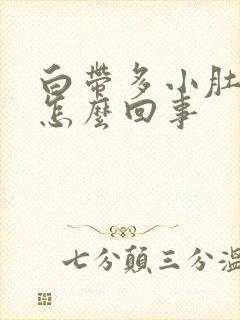 白帶多小肚
怎麼回事
七分顛三分溫